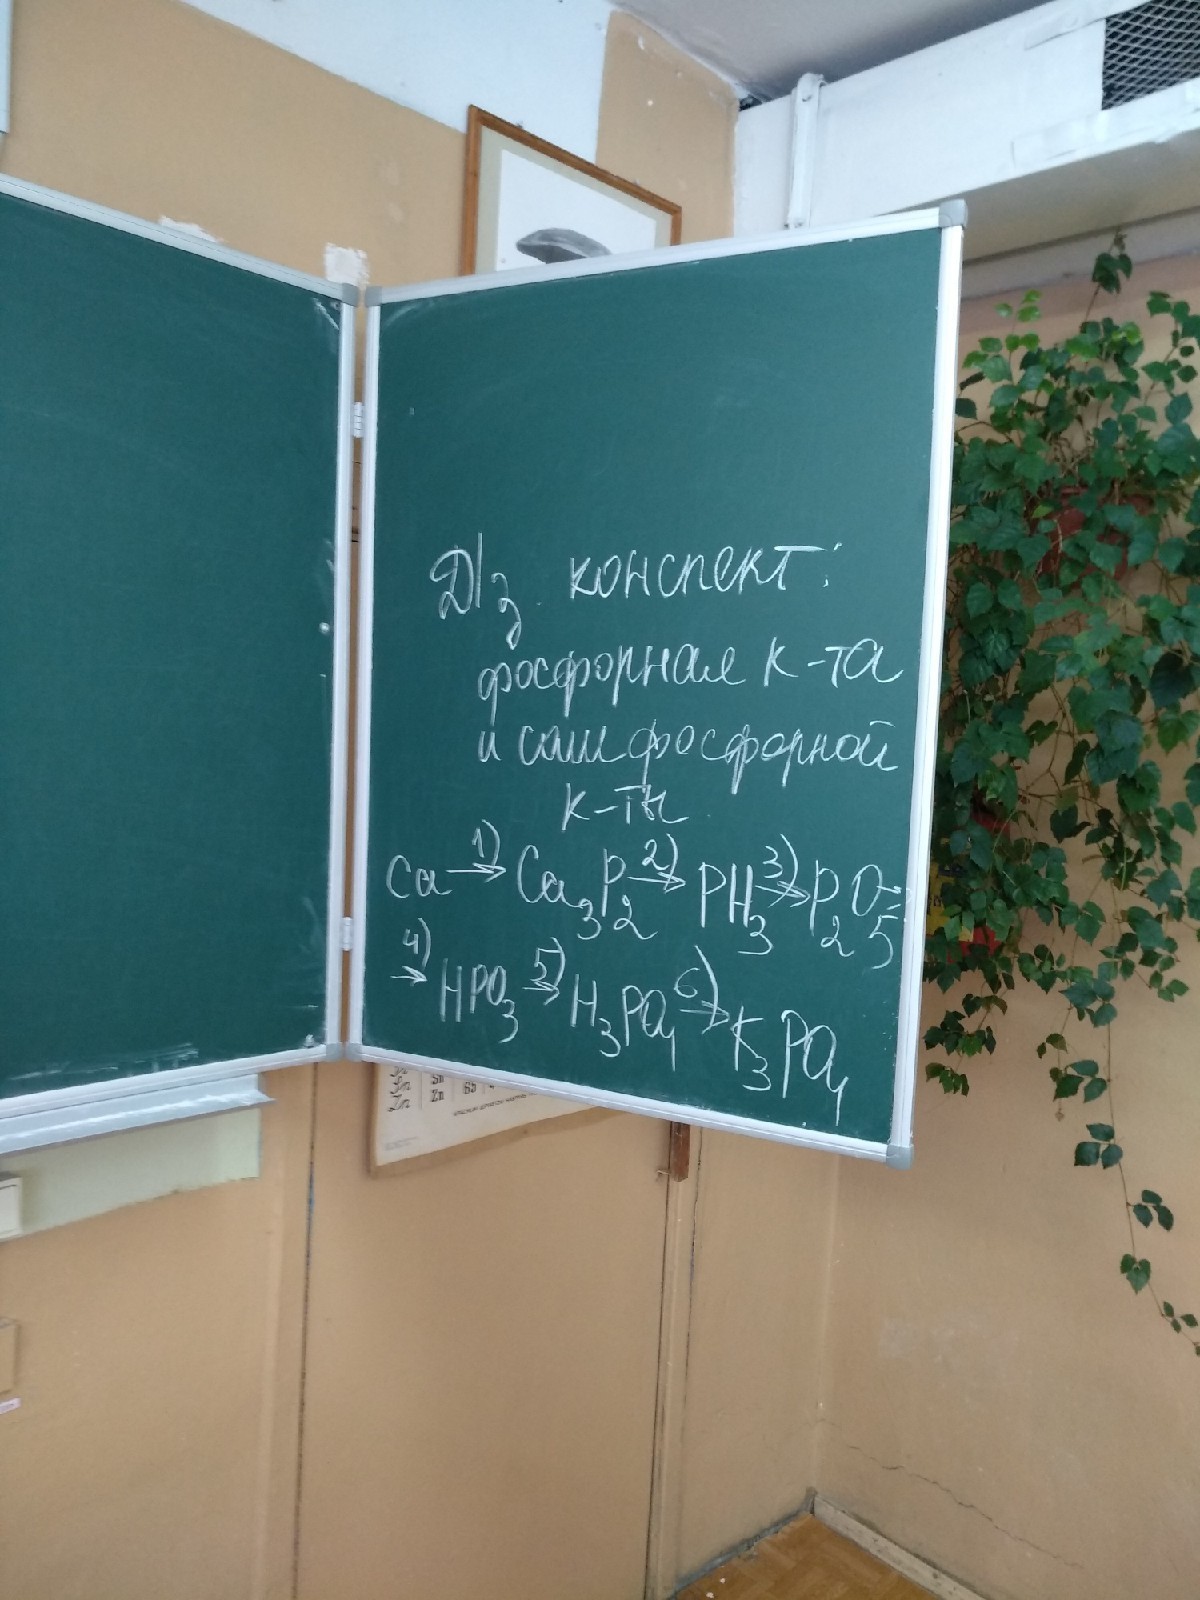 Д/з. конспект:
фосфорная к-та
и соли фосфорной
к-ты.
Ca 1)→ Ca₃P₂ 2)→ PH₃ 3)→ P₂O₅
4)→ HPO₃ 5)→ H₃PO₄ 6)→ K₃PO₄
Sn
Zn Zn